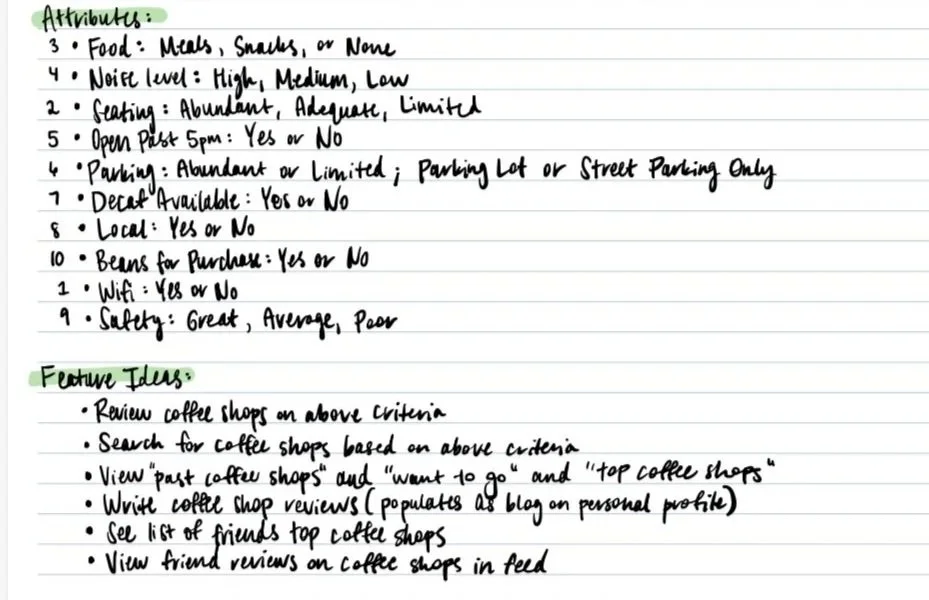 Attributes:
3 • Food: Meals, Snacks, or None
4 • Noise level: High, Medium, Low
2 • Seating: Abundant, Adequate, Limited
5 • Open Past 5pm: Yes or No
6 • Parking: Abundant or Limited; Parking Lot or Street Parking Only
7 • Decaf Available: Yes or No
8 • Local: Yes or No
10 • Beans for Purchase: Yes or No
1 • Wifi: Yes or No
9 • Safety: Great, Average, Poor
Feature Ideas:
• Review coffee shops on above criteria
• Search for coffee shops based on above criteria
• View "past coffee shops" and "want to go" and "top coffee shops"
• Write coffee shop reviews (populates as blog on personal profile)
• See list of friends top coffee shops
• View friend reviews on coffee shops in feed